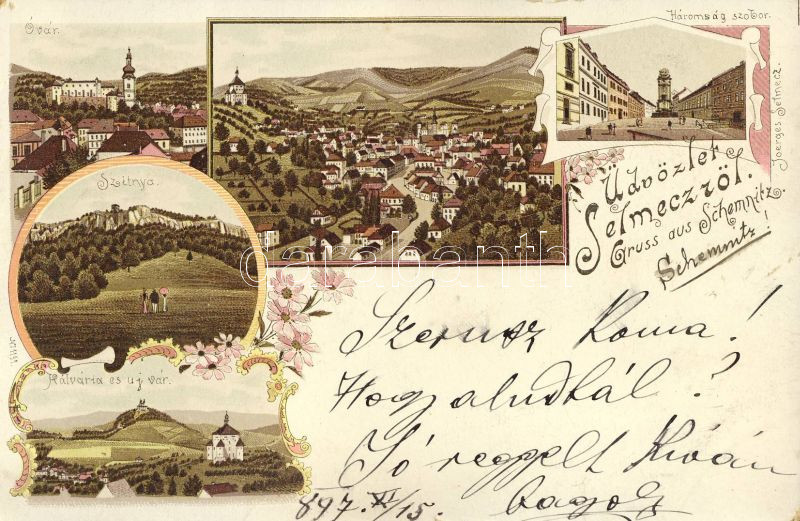 Óvár.
Háromság szobor.
Joerges Selmecz.
Szitnya.
Üdvözlet
Selmeczről.
Gruss aus Schemnitz.
Schemnitz!
carabanth.com
Kálvária és uj vár.
Szervusz Roma!
Hogy aludtál?
Jó reggelt Kiván
bagoly
897. XI/15.